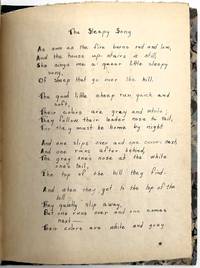 The Sleepy Song
As soon as the fire burns red and low,
And the house up-stairs is still,
She sings me a queer little sleepy
song,
Of sheep that go over the hill.
The good little sheep run quick and
soft,
Their colors are grey and white;
They follow their leader nose to tail,
For they must be home by night
And one slips over and one comes next
And one runs after behind,
The grey one's nose at the white
one's tail,
The top of the hill they find.
And when they get to the top of the
hill
They quietly slip away,
But one runs over and one comes
next—
Their colors are white and grey